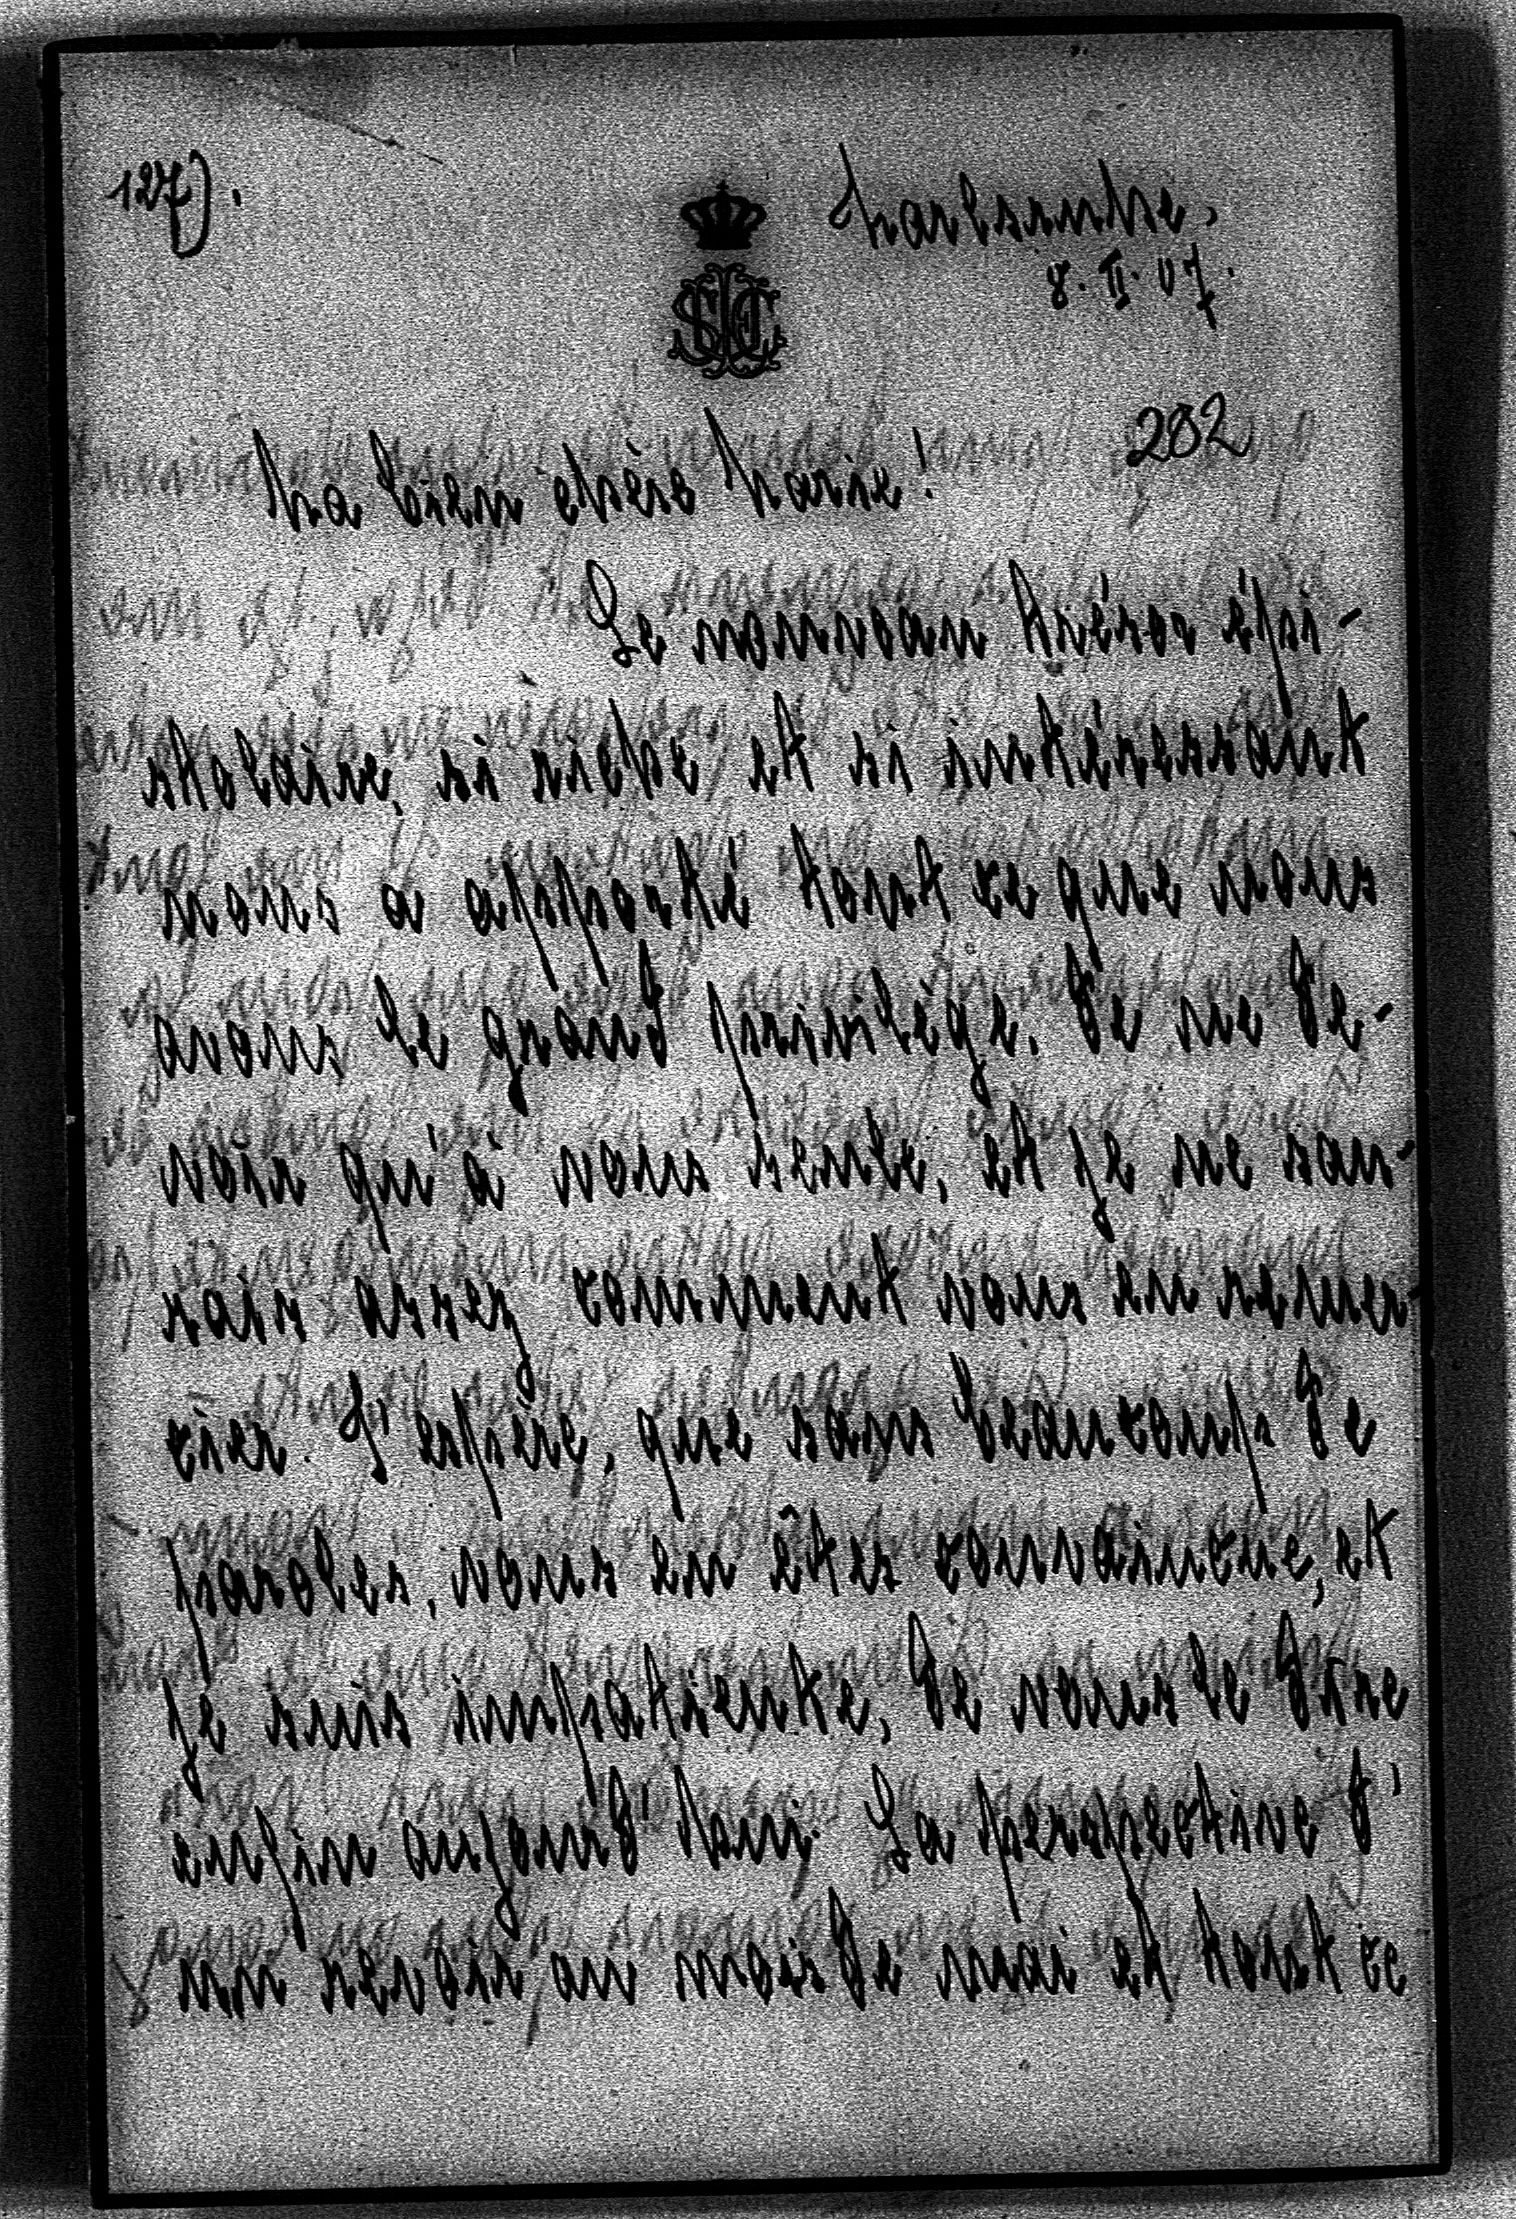 127).
Karlsruhe,
8. II. 07.
202
Ma bien chère Marie!
Le nouveau trésor épi-
stolaire, si riche et si intéressant
nous a apporté tout ce que nous
avons le grand privilège. De ne de-
voir qu'à vous seule, et je ne sau-
rais assez comment vous en remer-
cier. J'espère, que sans beaucoup de
paroles, vous en êtes convaincue, et
je suis impatiente, de vous le dire
enfin aujourd'hui. La perspective d'
un revoir au mois de mai et tout ce